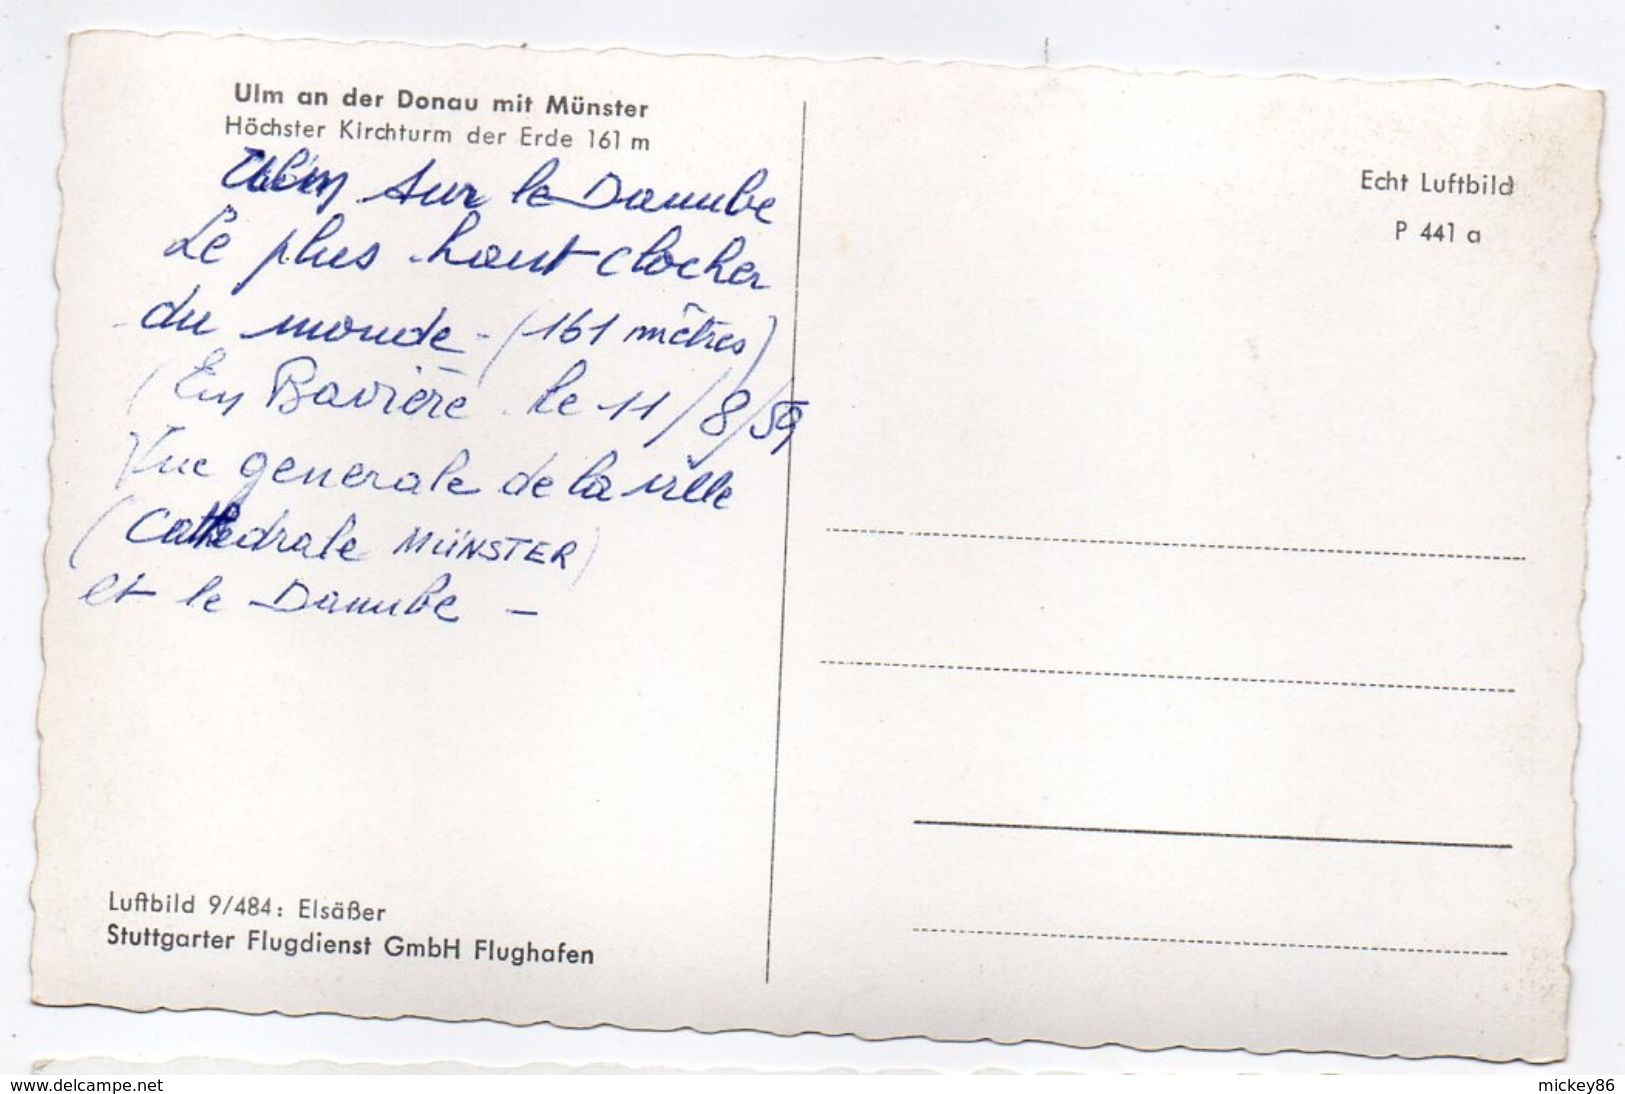 Ulm an der Donau mit Münster
Höchster Kirchturm der Erde 161 m
Ulm sur le Danube
Le plus haut clocher
du monde - (161 mètres)
(En Bavière le 11/8/59
Vue generale de la ville
(Cathedrale MÜNSTER)
et le Danube -
Luftbild 9/484: Elsäßer
Stuttgarter Flugdienst GmbH Flughafen
Echt Luftbild
P 441 a
www.delcampe.net
mickey86